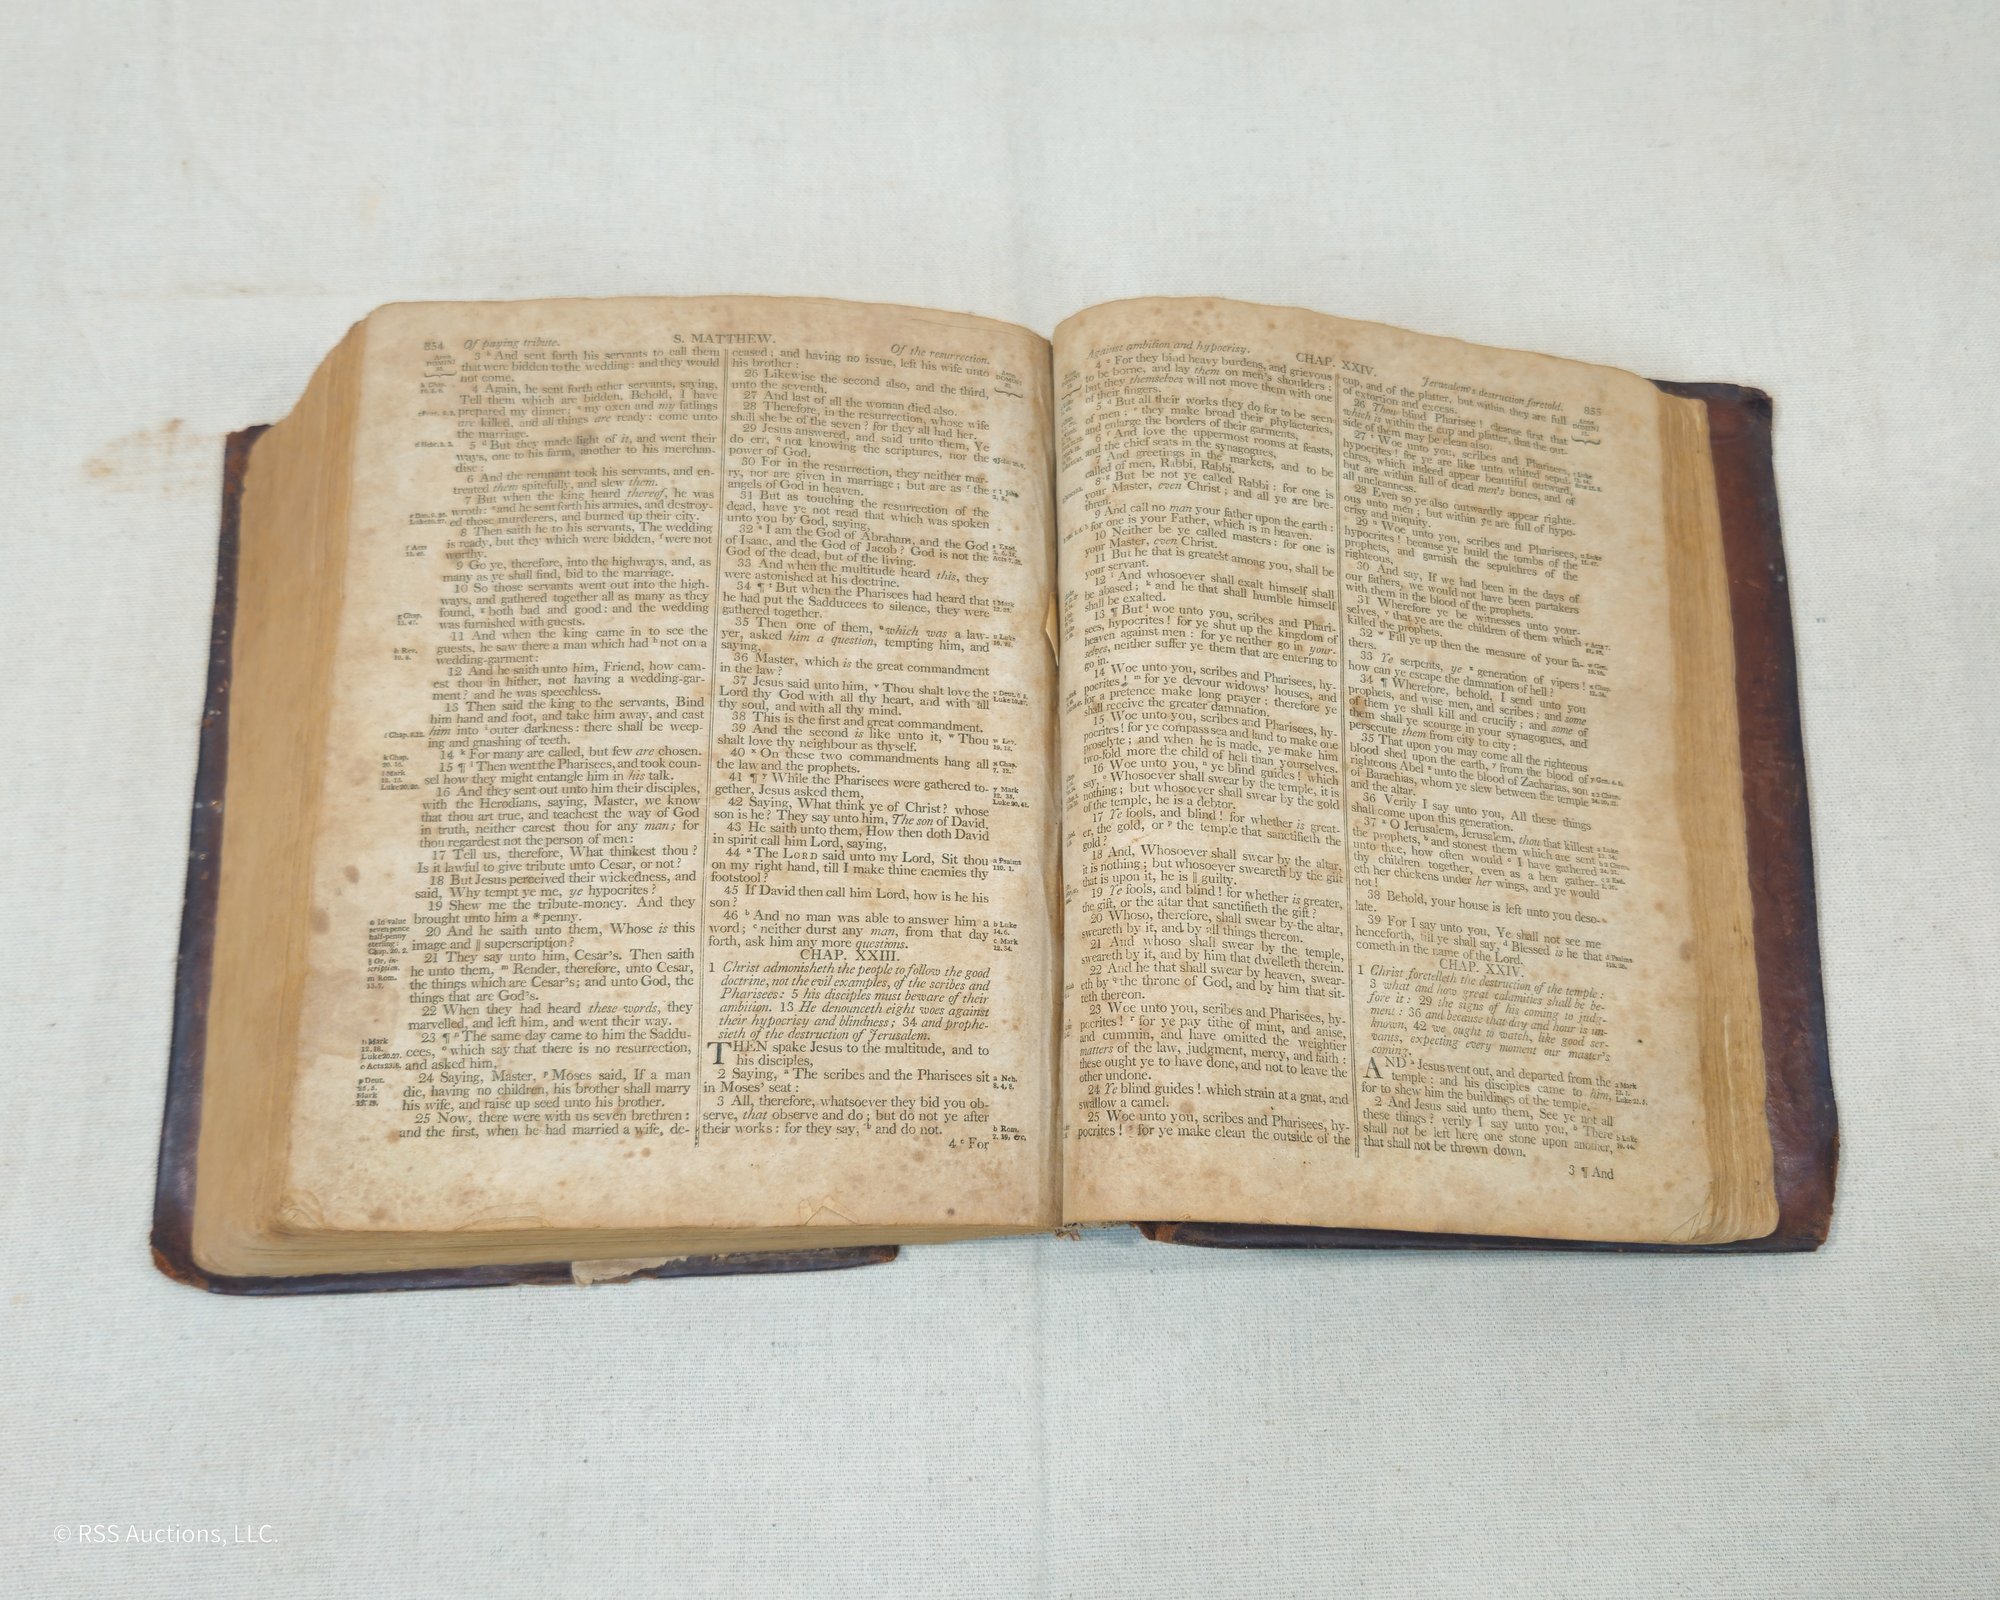 854 Of paying tribute. S. MATTHEW. Of the resurrection.
3 And sent forth his servants to call them
that were bidden to the wedding: and they would
not come.
4 Again, he sent forth other servants, saying,
Tell them which are bidden, Behold, I have
prepared my dinner: my oxen and my fatlings
are killed, and all things are ready: come unto
the marriage.
5 But they made light of it, and went their
ways, one to his farm, another to his merchan-
dise:
6 And the remnant took his servants, and en-
treated them spitefully, and slew them.
7 But when the king heard thereof, he was
wroth: and he sent forth his armies, and destroy-
ed those murderers, and burned up their city.
8 Then saith he to his servants, The wedding
is ready, but they which were bidden, were not
worthy.
9 Go ye, therefore, into the highways, and, as
many as ye shall find, bid to the marriage.
10 So those servants went out into the high-
ways, and gathered together all as many as they
found, both bad and good: and the wedding
was furnished with guests.
11 And when the king came in to see the
guests, he saw there a man which had not on a
wedding-garment:
12 And he saith unto him, Friend, how cam-
est thou in hither, not having a wedding-gar-
ment? and he was speechless.
13 Then said the king to the servants, Bind
him hand and foot, and take him away, and cast
him into outer darkness: there shall be weep-
ing and gnashing of teeth.
14 For many are called, but few are chosen.
15 ¶ Then went the Pharisees, and took coun-
sel how they might entangle him in his talk.
16 And they sent out unto him their disciples,
with the Herodians, saying, Master, we know
that thou art true, and teachest the way of God
in truth, neither carest thou for any man; for
thou regardest not the person of men:
17 Tell us, therefore, What thinkest thou?
Is it lawful to give tribute unto Cesar, or not?
18 But Jesus perceived their wickedness, and
said, Why tempt ye me, ye hypocrites?
19 Shew me the tribute-money. And they
brought unto him a *penny.
20 And he saith unto them, Whose is this
image and || superscription?
21 They say unto him, Cesar's. Then saith
he unto them, Render, therefore, unto Cesar,
the things which are Cesar's; and unto God, the
things that are God's.
22 When they had heard these words, they
marvelled, and left him, and went their way.
23 ¶ The same day came to him the Saddu-
cees, which say that there is no resurrection,
and asked him,
24 Saying, Master, Moses said, If a man
die, having no children, his brother shall marry
his wife, and raise up seed unto his brother.
25 Now, there were with us seven brethren:
and the first, when he had married a wife, de-
ceased; and having no issue, left his wife unto
his brother:
26 Likewise the second also, and the third,
unto the seventh.
27 And last of all the woman died also.
28 Therefore, in the resurrection, whose wife
shall she be of the seven? for they all had her.
29 Jesus answered, and said unto them, Ye
do err, not knowing the scriptures, nor the
power of God.
30 For in the resurrection, they neither mar-
ry, nor are given in marriage; but are as the
angels of God in heaven.
31 But as touching the resurrection of the
dead, have ye not read that which was spoken
unto you by God, saying,
32 I am the God of Abraham, and the God
of Isaac, and the God of Jacob? God is not the
God of the dead, but of the living.
33 And when the multitude heard this, they
were astonished at his doctrine.
34 ¶ But when the Pharisees had heard that
he had put the Sadducees to silence, they were
gathered together.
35 Then one of them, which was a law-
yer, asked him a question, tempting him, and
saying,
36 Master, which is the great commandment
in the law?
37 Jesus said unto him, Thou shalt love the
Lord thy God with all thy heart, and with all
thy soul, and with all thy mind.
38 This is the first and great commandment.
39 And the second is like unto it, Thou
shalt love thy neighbour as thyself.
40 On these two commandments hang all
the law and the prophets.
41 ¶ While the Pharisees were gathered to-
gether, Jesus asked them,
42 Saying, What think ye of Christ? whose
son is he? They say unto him, The son of David.
43 He saith unto them, How then doth David
in spirit call him Lord, saying,
44 The LORD said unto my Lord, Sit thou
on my right hand, till I make thine enemies thy
footstool?
45 If David then call him Lord, how is he his
son?
46 And no man was able to answer him a
word; neither durst any man, from that day
forth, ask him any more questions.
CHAP. XXIII.
1 Christ admonisheth the people to follow the good
doctrine, not the evil examples, of the scribes and
Pharisees: 5 his disciples must beware of their
ambition. 13 He denounceth eight woes against
their hypocrisy and blindness; 34 and prophe-
sieth of the destruction of Jerusalem.
THEN spake Jesus to the multitude, and to
his disciples,
2 Saying, The scribes and the Pharisees sit
in Moses' seat:
3 All, therefore, whatsoever they bid you ob-
serve, that observe and do; but do not ye after
their works: for they say, and do not.
4 For
Against ambition and hypocrisy. CHAP. XXIV. Jerusalem's destruction foretold. 855
4 For they bind heavy burdens, and grievous
to be borne, and lay them on men's shoulders;
but they themselves will not move them with one
of their fingers.
5 But all their works they do for to be seen
of men; they make broad their phylacteries,
and enlarge the borders of their garments,
6 And love the uppermost rooms at feasts,
and the chief seats in the synagogues,
7 And greetings in the markets, and to be
called of men, Rabbi, Rabbi.
8 But be not ye called Rabbi: for one is
your Master, even Christ; and all ye are bre-
thren.
9 And call no man your father upon the earth:
for one is your Father, which is in heaven.
10 Neither be ye called masters: for one is
your Master, even Christ.
11 But he that is greatest among you, shall be
your servant.
12 And whosoever shall exalt himself shall
be abased; and he that shall humble himself
shall be exalted.
13 ¶ But woe unto you, scribes and Phari-
sees, hypocrites! for ye shut up the kingdom of
heaven against men: for ye neither go in your-
selves, neither suffer ye them that are entering to
go in.
14 Woe unto you, scribes and Pharisees, hy-
pocrites! for ye devour widows' houses, and
for a pretence make long prayer: therefore ye
shall receive the greater damnation.
15 Woe unto you, scribes and Pharisees, hy-
pocrites! for ye compass sea and land to make one
proselyte; and when he is made, ye make him
two-fold more the child of hell than yourselves.
16 Woe unto you, ye blind guides! which
say, Whosoever shall swear by the temple, it is
nothing; but whosoever shall swear by the gold
of the temple, he is a debtor.
17 Ye fools, and blind! for whether is great-
er, the gold, or the temple that sanctifieth the
gold?
18 And, Whosoever shall swear by the altar,
it is nothing; but whosoever sweareth by the gift
that is upon it, he is || guilty.
19 Ye fools, and blind! for whether is greater,
the gift, or the altar that sanctifieth the gift?
20 Whoso, therefore, shall swear by the altar,
sweareth by it, and by all things thereon.
21 And whoso shall swear by the temple,
sweareth by it, and by him that dwelleth therein.
22 And he that shall swear by heaven, swear-
eth by the throne of God, and by him that sit-
teth thereon.
23 Woe unto you, scribes and Pharisees, hy-
pocrites! for ye pay tithe of mint, and anise,
and cummin, and have omitted the weightier
matters of the law, judgment, mercy, and faith:
these ought ye to have done, and not to leave the
other undone.
24 Ye blind guides! which strain at a gnat, and
swallow a camel.
25 Woe unto you, scribes and Pharisees, hy-
pocrites! for ye make clean the outside of the
cup, and of the platter, but within they are full
of extortion and excess.
26 Thou blind Pharisee! cleanse first that
which is within the cup and platter, that the out-
side of them may be clean also.
27 Woe unto you, scribes and Pharisees,
hypocrites! for ye are like unto whited sepul-
chres, which indeed appear beautiful outward,
but are within full of dead men's bones, and of
all uncleanness.
28 Even so ye also outwardly appear righte-
ous unto men; but within ye are full of hypo-
crisy and iniquity.
29 Woe unto you, scribes and Pharisees,
hypocrites! because ye build the tombs of the
prophets, and garnish the sepulchres of the
righteous,
30 And say, If we had been in the days of
our fathers, we would not have been partakers
with them in the blood of the prophets.
31 Wherefore ye be witnesses unto your-
selves, that ye are the children of them which
killed the prophets.
32 Fill ye up then the measure of your fa-
thers.
33 Ye serpents, ye generation of vipers!
how can ye escape the damnation of hell?
34 ¶ Wherefore, behold, I send unto you
prophets, and wise men, and scribes; and some
of them ye shall kill and crucify; and some of
them shall ye scourge in your synagogues, and
persecute them from city to city:
35 That upon you may come all the righteous
blood shed upon the earth, from the blood of
righteous Abel unto the blood of Zacharias, son
of Barachias, whom ye slew between the temple
and the altar.
36 Verily I say unto you, All these things
shall come upon this generation.
37 O Jerusalem, Jerusalem, thou that killest
the prophets, and stonest them which are sent
unto thee, how often would I have gathered
thy children together, even as a hen gather-
eth her chickens under her wings, and ye would
not!
38 Behold, your house is left unto you deso-
late.
39 For I say unto you, Ye shall not see me
henceforth, till ye shall say, Blessed is he that
cometh in the name of the Lord.
CHAP. XXIV.
1 Christ foretelleth the destruction of the temple:
3 what and how great calamities shall be be-
fore it: 29 the signs of his coming to judg-
ment: 36 and because that day and hour is un-
known, 42 we ought to watch, like good ser-
vants, expecting every moment our master's
coming.
AND Jesus went out, and departed from the
temple: and his disciples came to him,
for to shew him the buildings of the temple.
2 And Jesus said unto them, See ye not all
these things? verily I say unto you, There
shall not be left here one stone upon another,
that shall not be thrown down.
3 ¶ And
© RSS Auctions, LLC.